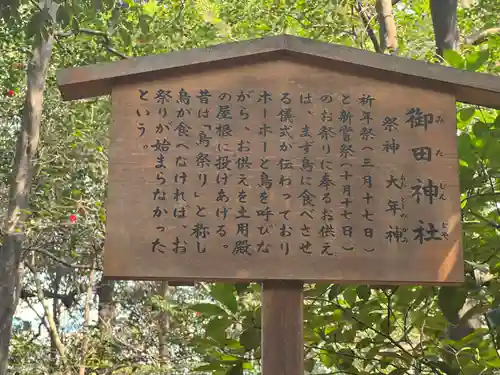 御田神社
祭神 大年神
祈年祭(三月十七日)
と新嘗祭(十月十七日)
のお祭りに奉るお供え
は、まず烏に食べさせ
る儀式が伝わっており
ホーホーと烏を呼びな
がら、お供えを土用殿
の屋根に投げあげる。
昔は「烏祭り」と称し
烏が食べなければ、お
祭りが始まらなかった
という。